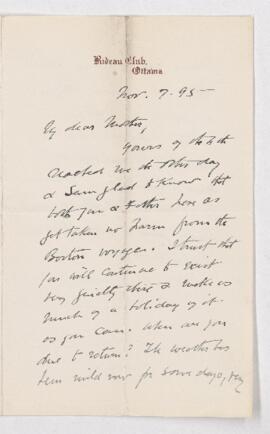 Rideau Club,
Ottawa
Nov. 7. 95 -
My dear Mother,
Yours of the 4th
reached me the other day
& I am glad to know that
both you & Father have as
yet taken no harm from the
Boston voyage. I trust that
you will continue to exist
very quietly there & make as
much of a holiday of it
as you can. When are you
due to return? The weather has
been mild now for some days,